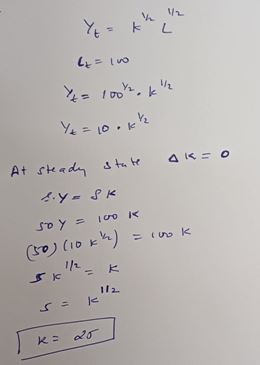 Yₜ = K^1/2 L^1/2
Lₜ = 100
Yₜ = 100^1/2 · K^1/2
Yₜ = 10 · K^1/2
At steady state ΔK = 0
s.Y = δK
50 Y = 100 K
(50) (10 K^1/2) = 100 K
5 K^1/2 = K
5 = K^1/2
K = 25